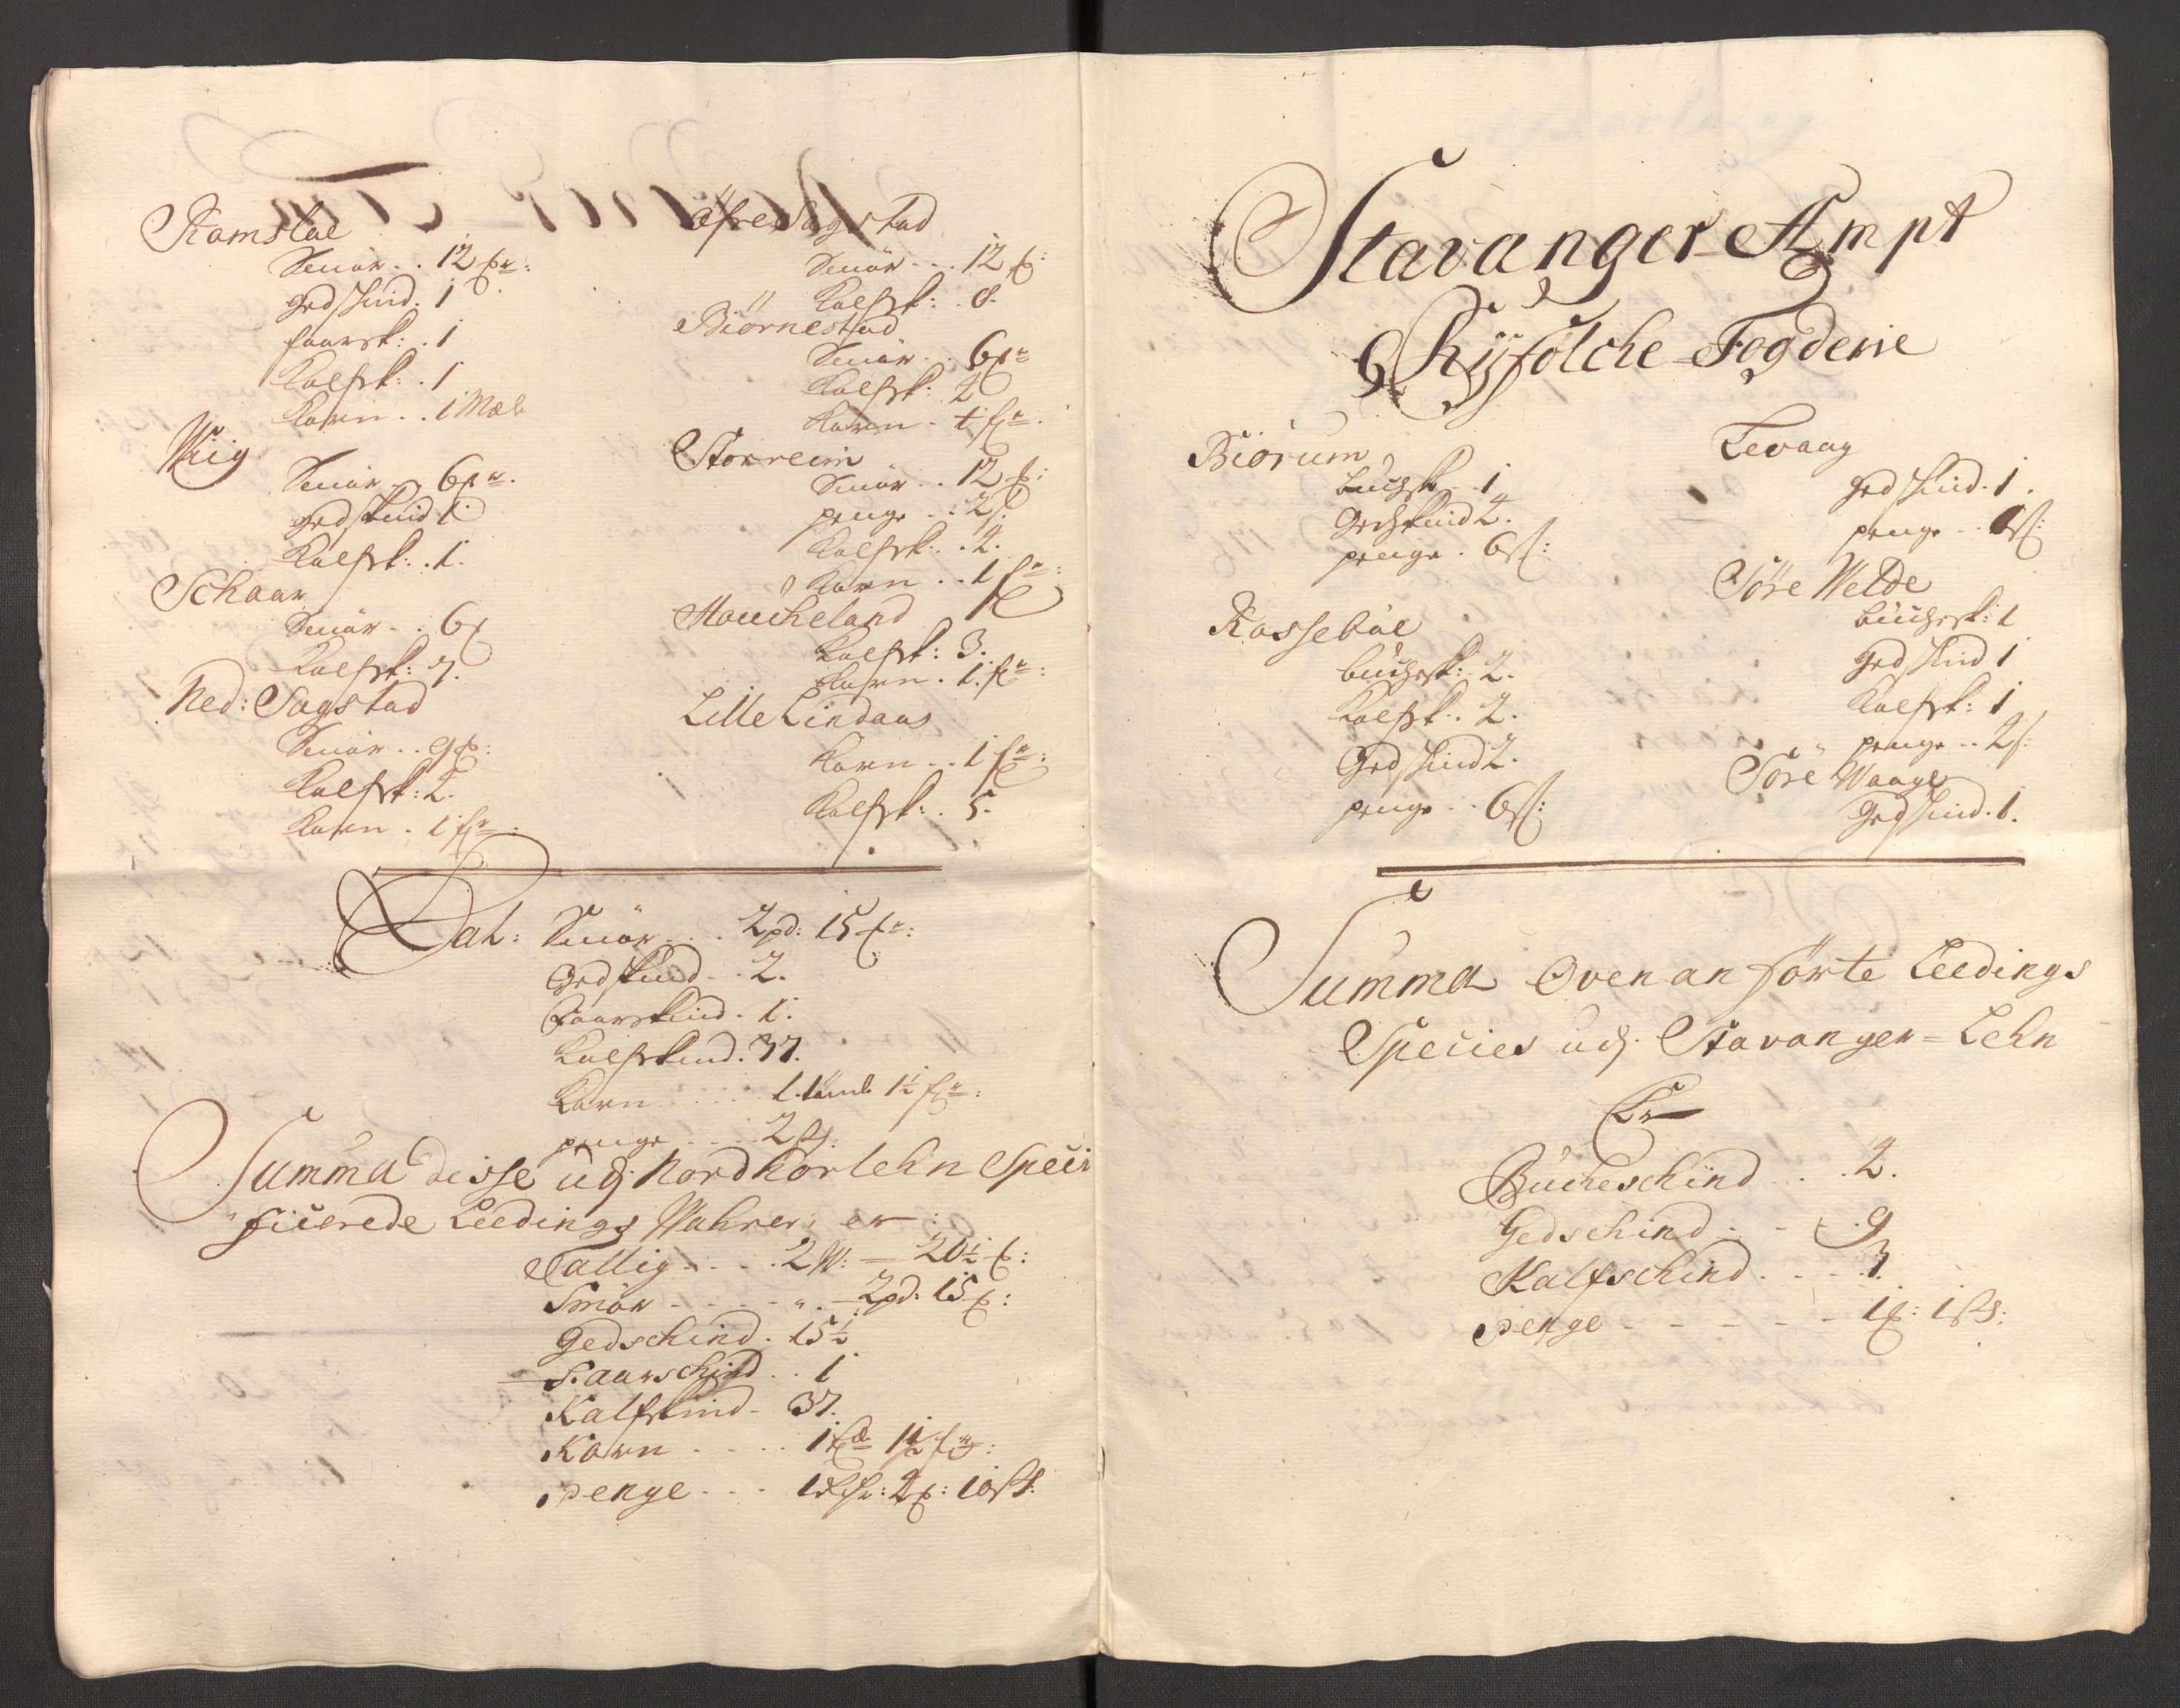 Ramstal
Smör . . 12
Gedskind . 1
faarsk: . 1
Kalfsk: . 1
Korn . . 1 Mæle
Wiig
Smör . . 6
Gedskind 1
Kalfsk: . 1.
Schaar
Smör . . 6
Kalfsk: 7.
Ned: Sagstad
Smör . . 9
Kalfsk: 2.
Korn . 1
öfre Sagstad
Smör . . . 12
Kalfsk: . 8.
Biörnestad
Smör . . 6
Kalfsk: 2
Korn .
Storreim
Smör . . 12
penge . . 2 s
Kalfsk: . 4.
Korn . . 1
Moucheland
Kalfsk: 3.
Korn . 1.
Lille Lindaas
Korn . . 1
Kalfsk: . 5.
Lat: Smör . . . 2 pd: 15
Gedskind . . 2.
Faarskind . 1.
Kalfskind . 37.
Korn . . . . 1. tönde 1½
penge . . . . 2 s
Summa disse udj Nordhorlehn Speci
ficerede Leedings Wahrer, er:
Tallig . . . . 2 W: = 20½
Smör - - - - „ . - 2 pd. 15
Gedschind . 15½
Faarschind . . 1
Kalfskind - 37.
Korn . . . . 1
penge . . . 1 : 10 s
Stavanger-Ampt
Ryfölche-Fogderie
Biorum
buchsk . . 1
Gedskind 2.
penge . 6 s:
Rosseböe
buchsk: 2.
Kalfsk . 2.
Gedskind 2.
penge . . 6 s:
Levaag
Gedskind . 1.
penge . .
Töre Welde
buchsk: 1
Gedskind 1
Kalfsk: 1
penge . . 2 s:
Töre Waage
Gedskind . 1.
Summa Ovenanförte Leedings
Species udj. Stavanger-Lehn
Er
Bucheschind . . . 4.
Gedschind . . - 9
Kalfschind . . . . 3.
penge - - - - - 1 : 1 s: